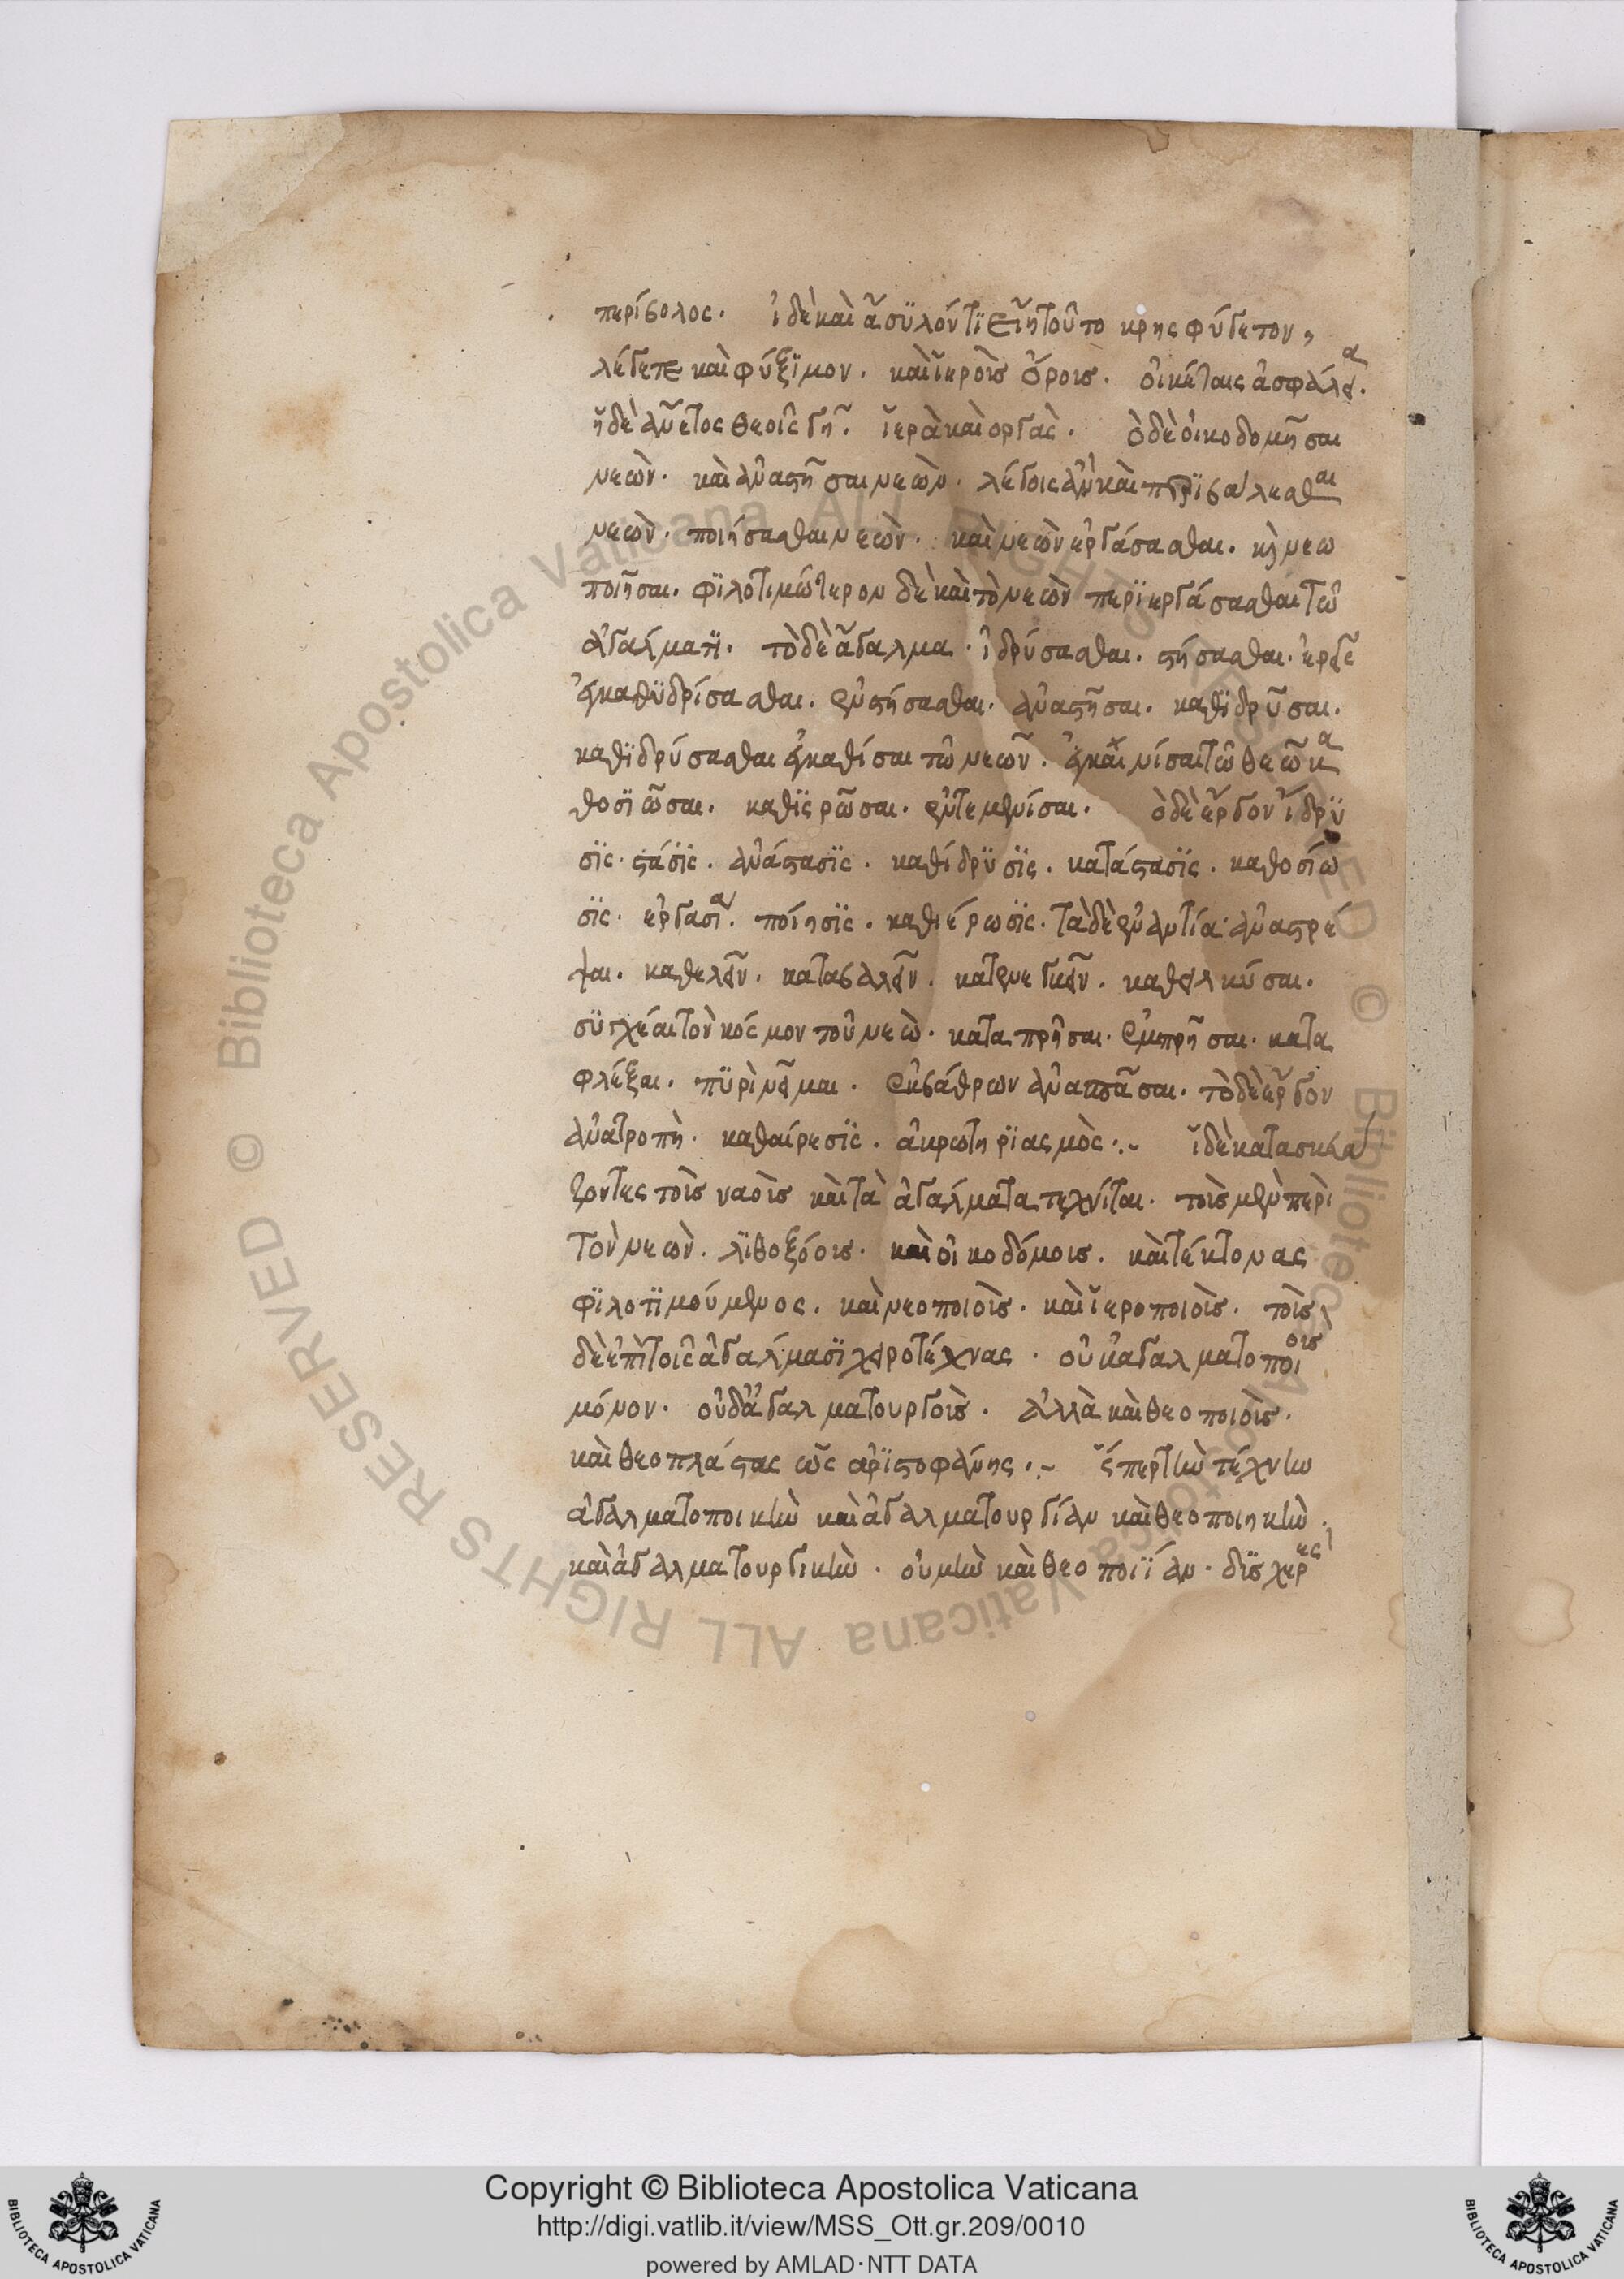 περίβολος. ἰ δὲ καὶ ἄσϋλόν τϊ εἴη τοῦτο κρησφύγετον,
λέγεται καὶ φύξϊμον. καὶ ἱεροῖς ὅροις. οἰκέταις ἀσφάλεια.
ἡ δὲ ἄνετος θεοῖς γῆ. ἱερὰ καὶ ὀργάς. ὁ δὲ οἰκοδομῆσαι
νεών. καὶ ἀναστῆσαι νεών. λέγοις ἂν καὶ περϊβαλέσθαι
νεών. ποιήσασθαι νεών. καὶ νεὼν ἐργάσασθαι. κὶ νεω
ποιῆσαι. φϊλοτιμώτερον δὲ καὶ τὸ νεὼν περϊεργάσασθαι τῶ
ἀγάλματϊ. τὸ δὲ ἄγαλμα. ἱδρύσασθαι. στήσασθαι.
ἐγκαθϋδρίσασθαι. ἐνστήσασθαι. ἀναστῆσαι. καθϊδρῦσαι.
καθϊδρύσασθαι ἐγκαθίσαι τῶ νεῶν. ἐγκαινίσαι τῶ θεῶ κα
θοσϊῶσαι. καθϊερῶσαι. ἐντεμενίσαι. ὁ δὲ ἔργον ἵδρϋ
σϊς. στάσϊς. ἀνάστασϊς. καθίδρϋσϊς. κατάστασϊς. καθοσίω
σϊς. ἐργασία. ποίησϊς. καθιέρωσϊς. τὰ δὲ ἐναντία ἀναστρέ
ψαι. καθελεῖν. καταβαλεῖν. κατενεγκεῖν. καθελκύσαι.
σϋγχέαι τὸν κόσμον τοῦ νεώ. καταπρῆσαι. ἐμπρῆσαι. κατα
φλέξαι. πϋρὶ νεῖμαι. ἐκ βάθρων ἀνασπᾶσαι. τὸ δὲ ἔργον
ἀνατροπή. καθαίρεσϊς. ἀκρωτηρϊασμὸς:~ ἰ δὲ κατασκευά
ζοντες τοῖς ναοῖς καὶ τὰ ἀγάλματα τεχνίται. τοῖς μὲν περὶ
τὸν νεών. λϊθοξόοις. καὶ οἰκοδόμοις. καὶ τέκτονας
φϊλοτϊμούμενος. καὶ νεοποιοῖς. καὶ ἱεροποιοῖς. τοῖς
δὲ ἐπὶ τοῖς ἀγάλμασϊ χειροτέχνας. οὐκ ἀγαλματοποιοῖς
μόνον. οὐδ' ἀγαλματουργοῖς. ἀλλὰ καὶ θεοποιοῖς.
καὶ θεοπλάστας ὡς ἀρϊστοφάνης:~ ὥσπερ τὴν τέχνην
ἀγαλματοποικὴν καὶ ἀγαλματουργίαν καὶ θεοποιηκὴν.
καὶ ἀγαλματουργικὴν. οὐ μὴν καὶ θεοποιΐαν. δϊσχερὲς
Copyright © Biblioteca Apostolica Vaticana
http://digi.vatlib.it/view/MSS_Ott.gr.209/0010
powered by AMLAD·NTT DATA